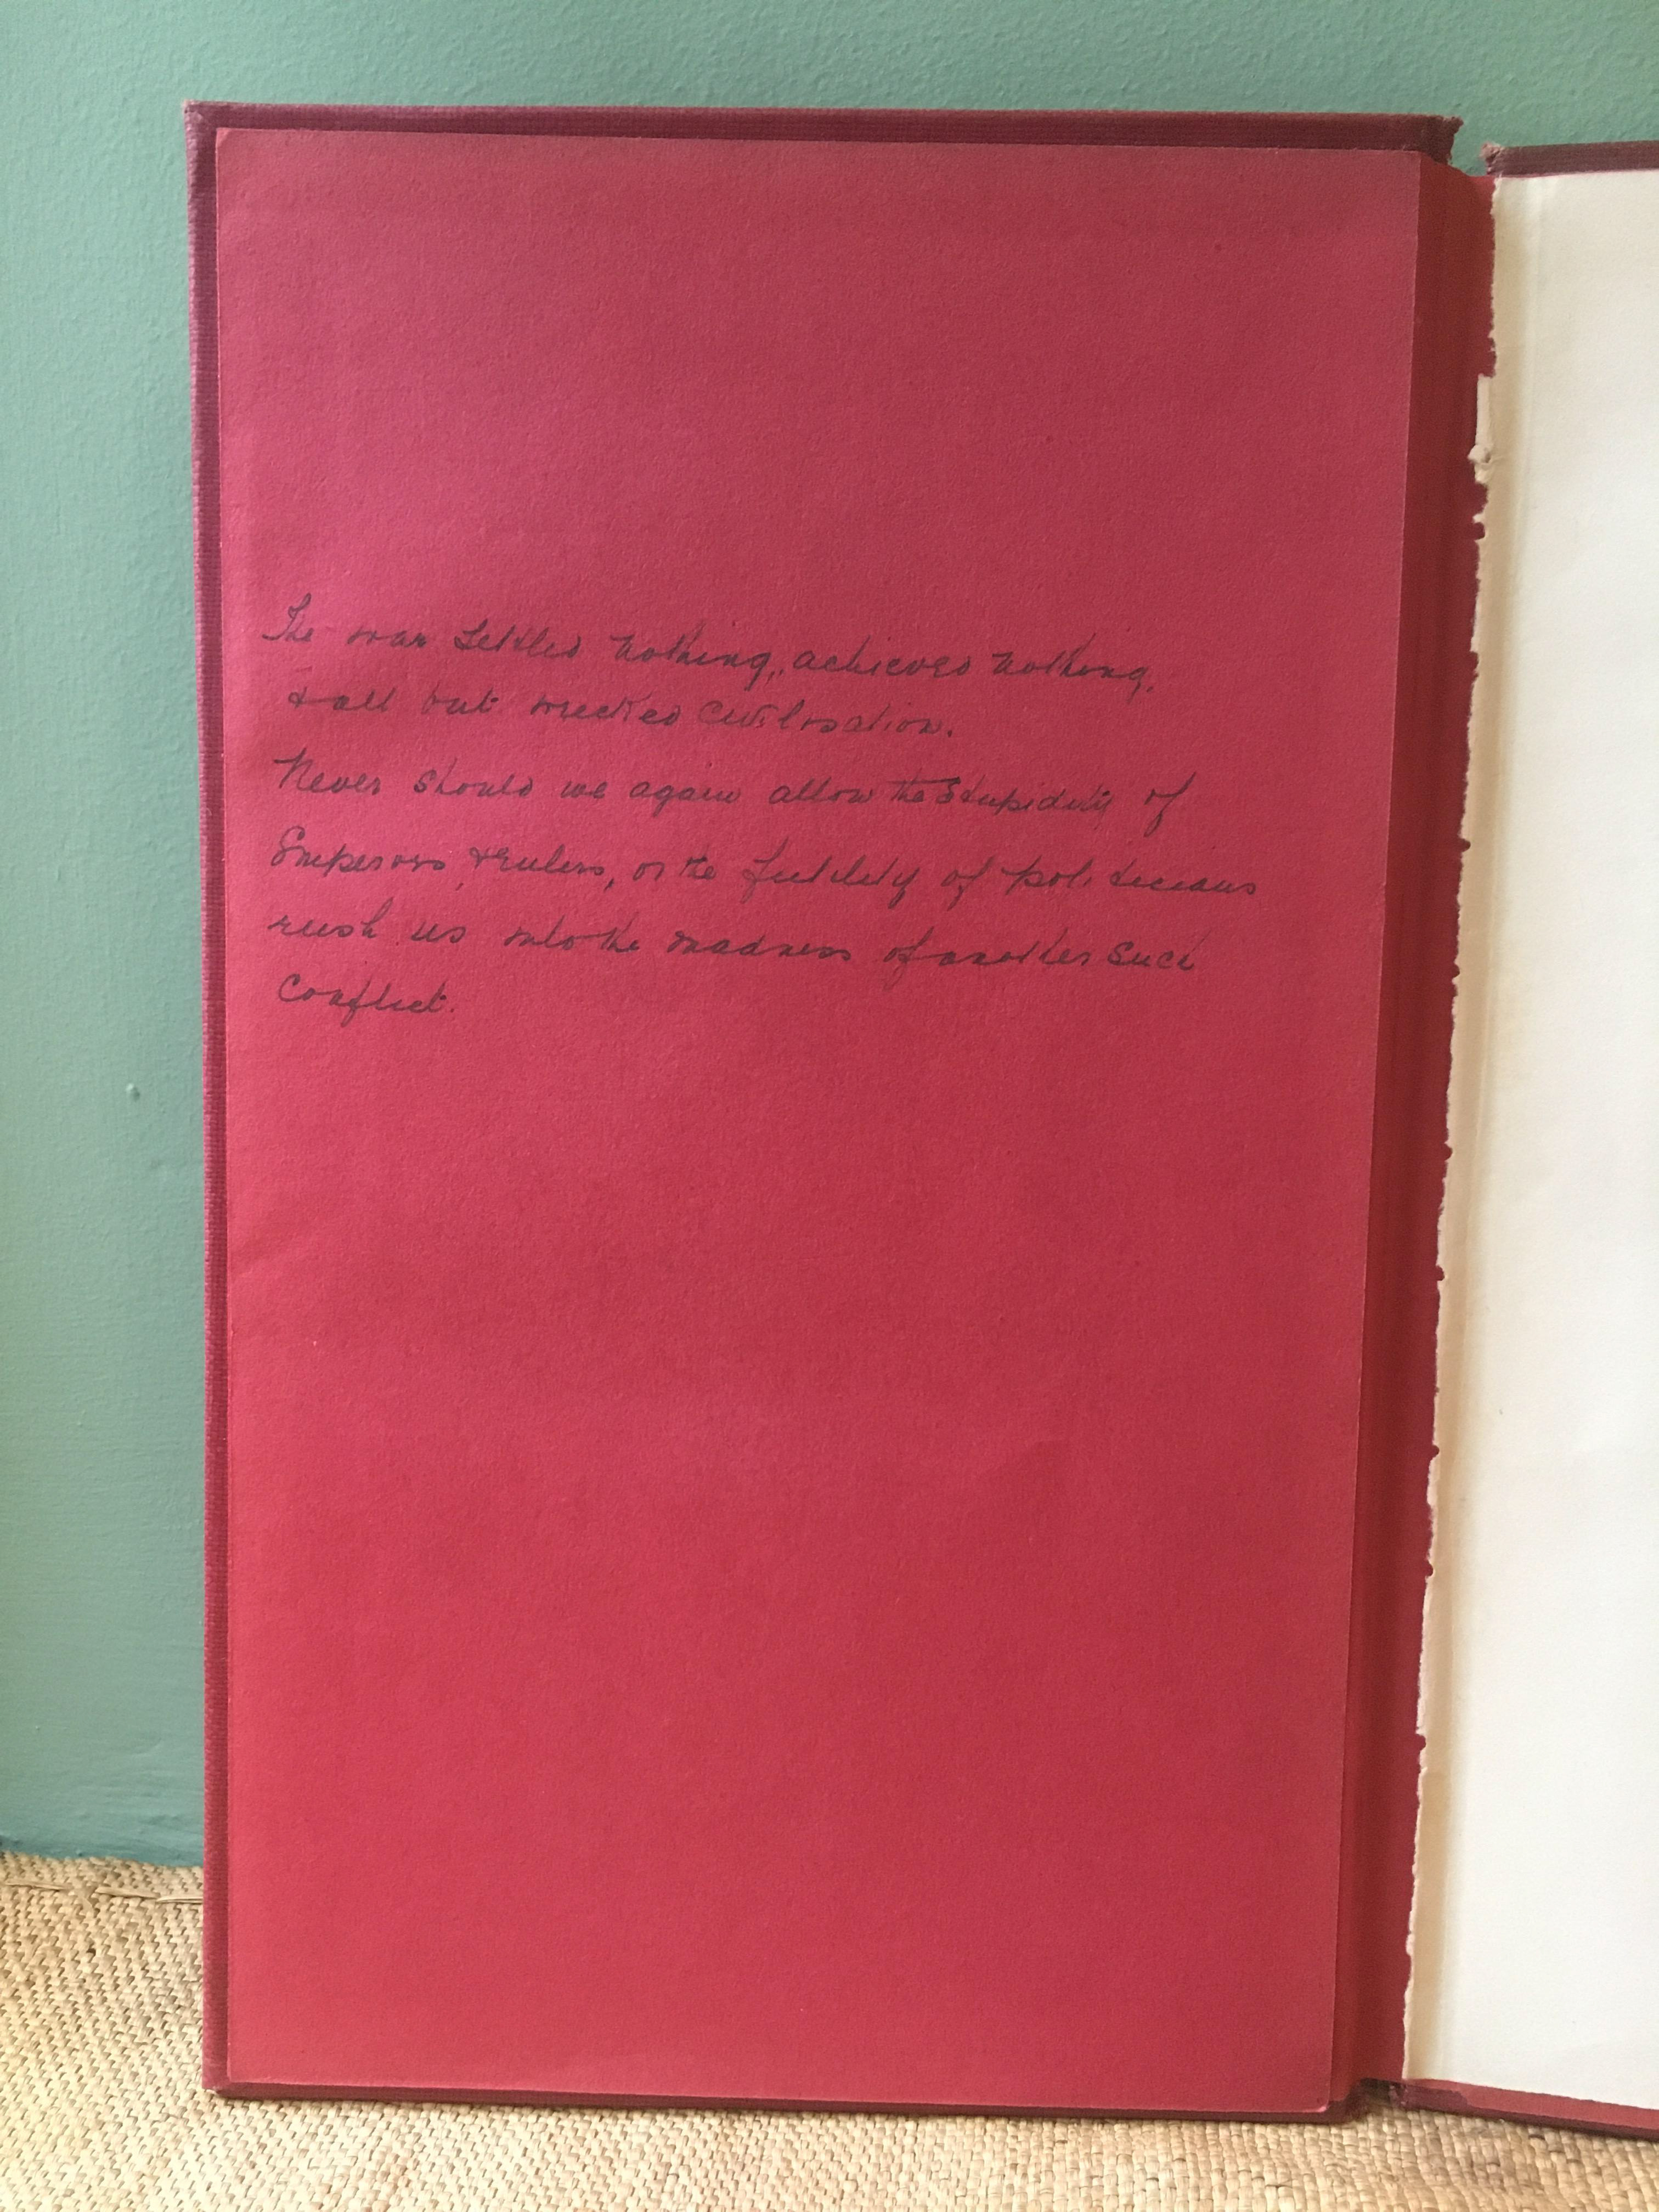 The war settled nothing, achieved nothing,
& all but wrecked Civilisation.
Never should we again allow the Stupidity of
Emperors, & rulers, or the futility of politicians
rush us into the madness of another such
Conflict.